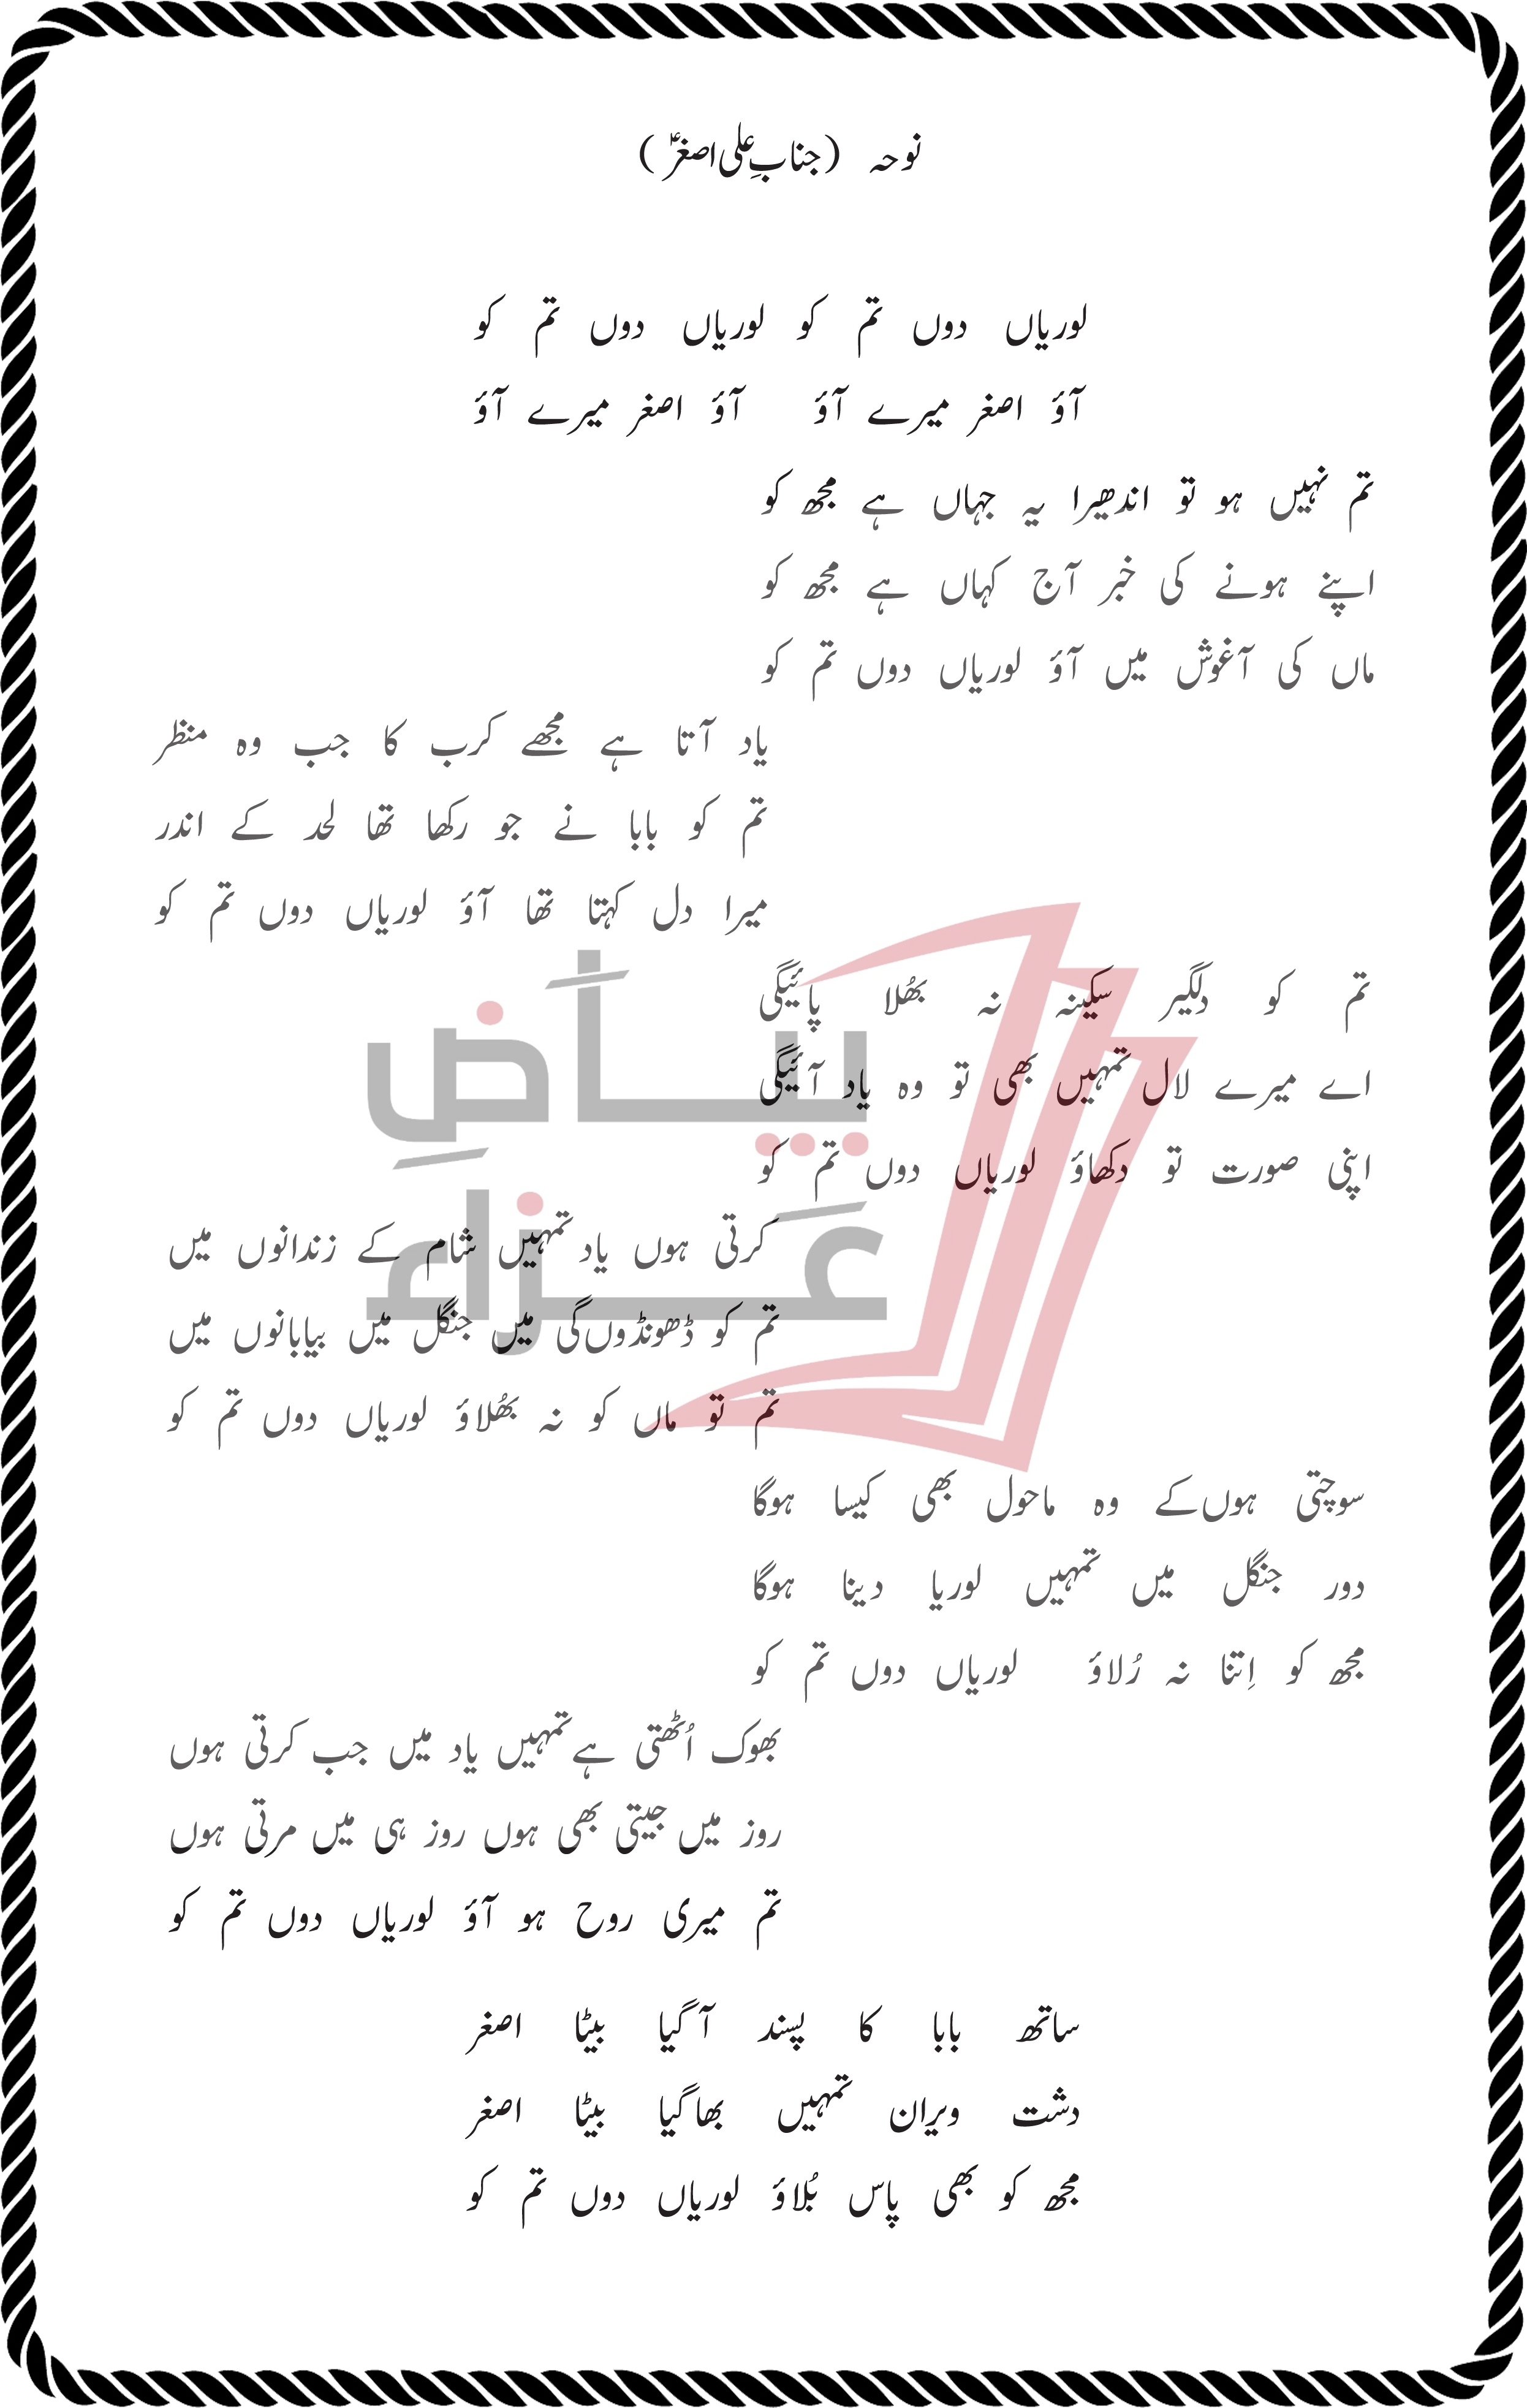 نوحہ (جنابِ علی اصغرؑ)
لوریاں دوں تم کو لوریاں دوں تم کو
آؤ اصغر میرے آؤ آؤ اصغر میرے آؤ
تم نہیں ہو تو اندھیرا یہ جہاں ہے مجھ کو
اپنے ہونے کی خبر آج کہاں ہے مجھ کو
ماں کی آغوش میں آؤ لوریاں دوں تم کو
یاد آتا ہے مجھے کرب کا جب وہ منظر
تم کو بابا نے جو رکھا تھا لحد کے اندر
میرا دل کہتا تھا آؤ لوریاں دوں تم کو
تم کو دلگیر سکینہ نہ بھُلا پائیگی
اے میرے لال تمہیں بھی تو وہ یاد آئیگی
اپنی صورت تو دکھاؤ لوریاں دوں تم کو
کرتی ہوں یاد تمہیں شام کے زندانوں میں
تم کو ڈھونڈوں گی میں جنگل میں بیابانوں میں
تم تو ماں کو نہ بھُلاؤ لوریاں دوں تم کو
سوچتی ہوں کے وہ ماحول بھی کیسا ہوگا
دور جنگل میں تمہیں لوریا دینا ہوگا
مجھ کو اِتنا نہ رُلاؤ لوریاں دوں تم کو
بھوک اُٹھتی ہے تمہیں یاد میں جب کرتی ہوں
روز میں جیتی بھی ہوں روز ہی میں مرتی ہوں
تم میری روح ہو آؤ لوریاں دوں تم کو
ساتھ بابا کا پسند آگیا بیٹا اصغر
دشت ویران تمہیں بھاگیا بیٹا اصغر
مجھ کو بھی پاس بُلاؤ لوریاں دوں تم کو
بیاضِ
عزاء